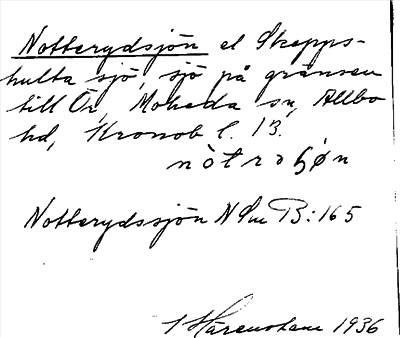 Notterydsjön el Skepps-
hulta sjö, sjö på gränsen
till Ör, Moheda sn, Allbo
hd, Kronob l. 13.
nòtroɧøn
Notterydssjön N Sm B:165
1936